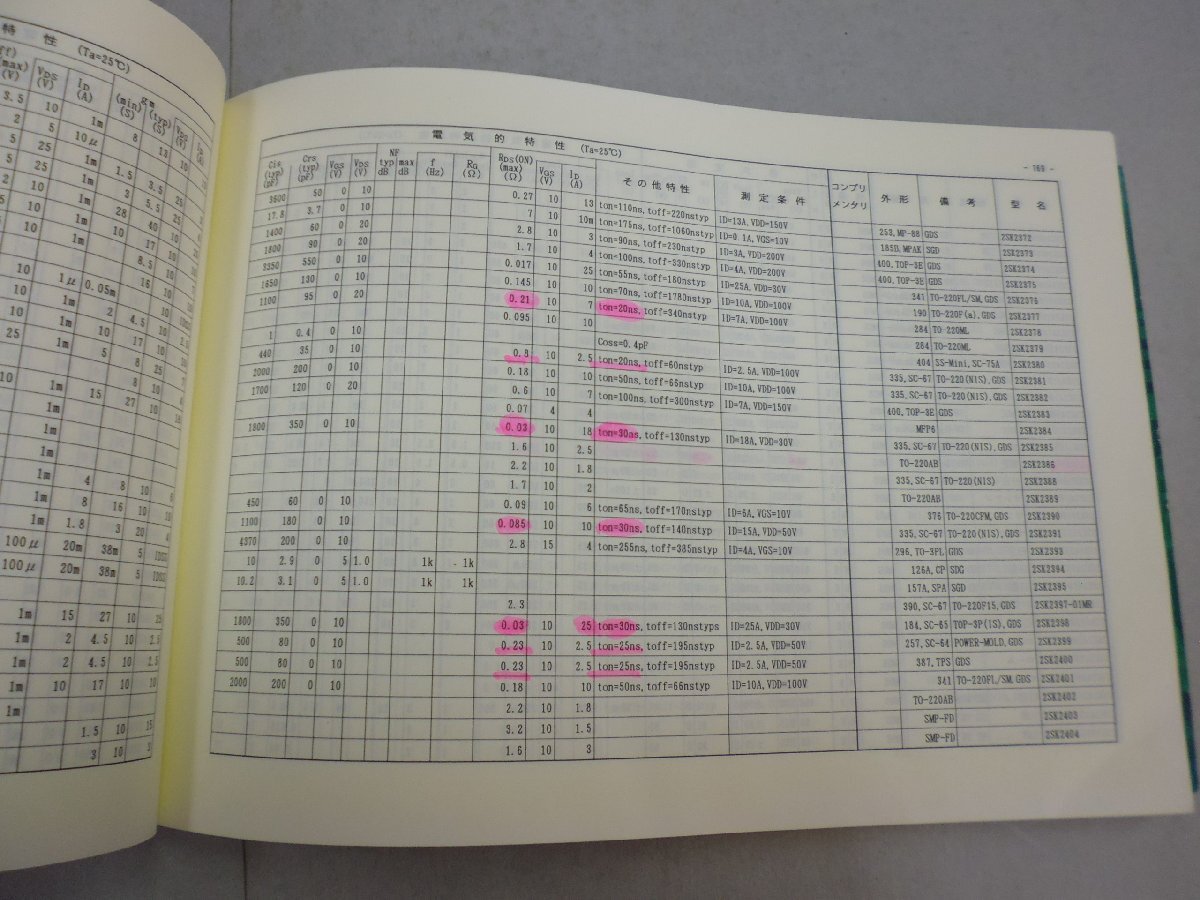 特 性 (Ta=25℃)
(max) (V) VDS (V) ID (A) gm (min) (S) (typ) (S) VDS (V) ID
3.5 10 1m 8 13 10
2 5 10μ
5 25 1m 1.5 3.5 25
5 25 1m 3 5.5 25
2 10 1m 28 40 10
5 10 1m 10 17 10
10 1m 8.5 16 10
10 1μ 0.05m
10 1m 2 4.5 10
10 1m 10 17 10
25 1m 5 8 25
10 1m 8 10
1m 15 27 10
1m
1m
1m
1m 4 8 10 6
1m 8 16 10 10
1m 1.8 3 20 4
100μ 20m 38m 5 IDSS
100μ 20m 38m 5 IDSS
1m 15 27 10 25
1m 2 4.5 10 2.5
1m 2 4.5 10 2.5
1m 10 17 10 10
1m
1.5 10 15
3 10 3
- 169 -
電 気 的 特 性 (Ta=25℃)
Cis (typ) (pF) Crs (typ) (pF) VGS (V) VDS (V) NF typ dB max dB f (Hz) RG (Ω) RDS(ON) (max) (Ω) VGS (V) ID (A) その他特性 測定条件 コンプリメンタリ 外形 備考 型名
3600 50 0 10 0.27 10 13 ton=110ns, toff=220nstyp ID=13A, VDD=150V 253, MP-88 GDS 2SK2372
17.8 3.7 0 10 7 10 10m ton=175ns, toff=1060nstyp ID=0.1A, VGS=10V 185B, MPAK SGD 2SK2373
1400 60 0 20 2.8 10 3 ton=90ns, toff=230nstyp ID=3A, VDD=200V 400, TOP-3E GDS 2SK2374
1800 90 0 20 1.7 10 4 ton=100ns, toff=330nstyp ID=4A, VDD=200V 400, TOP-3E GDS 2SK2375
3350 550 0 10 0.017 10 25 ton=55ns, toff=180nstyp ID=25A, VDD=30V 341 TO-220FL/SM, GDS 2SK2376
1650 130 0 10 0.145 10 10 ton=70ns, toff=1780nstyp ID=10A, VDD=100V 190 TO-220F(a), GDS 2SK2377
1100 95 0 20 0.21 10 7 ton=20ns, toff=340nstyp ID=7A, VDD=100V 284 TO-220ML 2SK2378
0.095 10 10 284 TO-220ML 2SK2379
1 0.4 0 10 Coss=0.4pF 404 SS-Mini, SC-75A 2SK2380
440 35 0 10 0.8 10 2.5 ton=20ns, toff=60nstyp ID=2.5A, VDD=100V 335, SC-67 TO-220(NIS), GDS 2SK2381
2000 200 0 10 0.18 10 10 ton=50ns, toff=66nstyp ID=10A, VDD=100V 335, SC-67 TO-220(NIS), GDS 2SK2382
1700 120 0 20 0.6 10 7 ton=100ns, toff=300nstyp ID=7A, VDD=150V 400, TOP-3E GDS 2SK2383
0.07 4 4 MFP6 2SK2384
1800 350 0 10 0.03 10 18 ton=30ns, toff=130nstyp ID=18A, VDD=30V 335, SC-67 TO-220(NIS), GDS 2SK2385
1.6 10 2.5 TO-220AB 2SK2386
2.2 10 1.8 335, SC-67 TO-220(NIS) 2SK2388
1.7 10 2 TO-220AB 2SK2389
450 60 0 10 0.09 10 6 ton=65ns, toff=170nstyp ID=6A, VGS=10V 376 TO-220CFM, GDS 2SK2390
1100 180 0 10 0.085 10 10 ton=30ns, toff=140nstyp ID=15A, VDD=50V 335, SC-67 TO-220(NIS), GDS 2SK2391
4370 200 0 10 2.8 15 4 ton=255ns, toff=385nstyp ID=4A, VGS=10V 296, TO-3PL GDS 2SK2393
10 2.9 0 5 1.0 1k - 1k 126A, CP SDG 2SK2394
10.2 3.1 0 5 1.0 1k 1k 157A, SPA SGD 2SK2395
2.3 390, SC-67 TO-220F15, GDS 2SK2397-01MR
1800 350 0 10 0.03 10 25 ton=30ns, toff=130nstyps ID=25A, VDD=30V 184, SC-65 TOP-3P(IS), GDS 2SK2398
500 80 0 10 0.23 10 2.5 ton=25ns, toff=195nstyp ID=2.5A, VDD=50V 257, SC-64 POWER-MOLD, GDS 2SK2399
500 80 0 10 0.23 10 2.5 ton=25ns, toff=195nstyp ID=2.5A, VDD=50V 387, TPS GDS 2SK2400
2000 200 0 10 0.18 10 10 ton=50ns, toff=66nstyp ID=10A, VDD=100V 341 TO-220FL/SM, GDS 2SK2401
2.2 10 1.8 TO-220AB 2SK2402
3.2 10 1.5 SMP-FD 2SK2403
1.6 10 3 SMP-FD 2SK2404